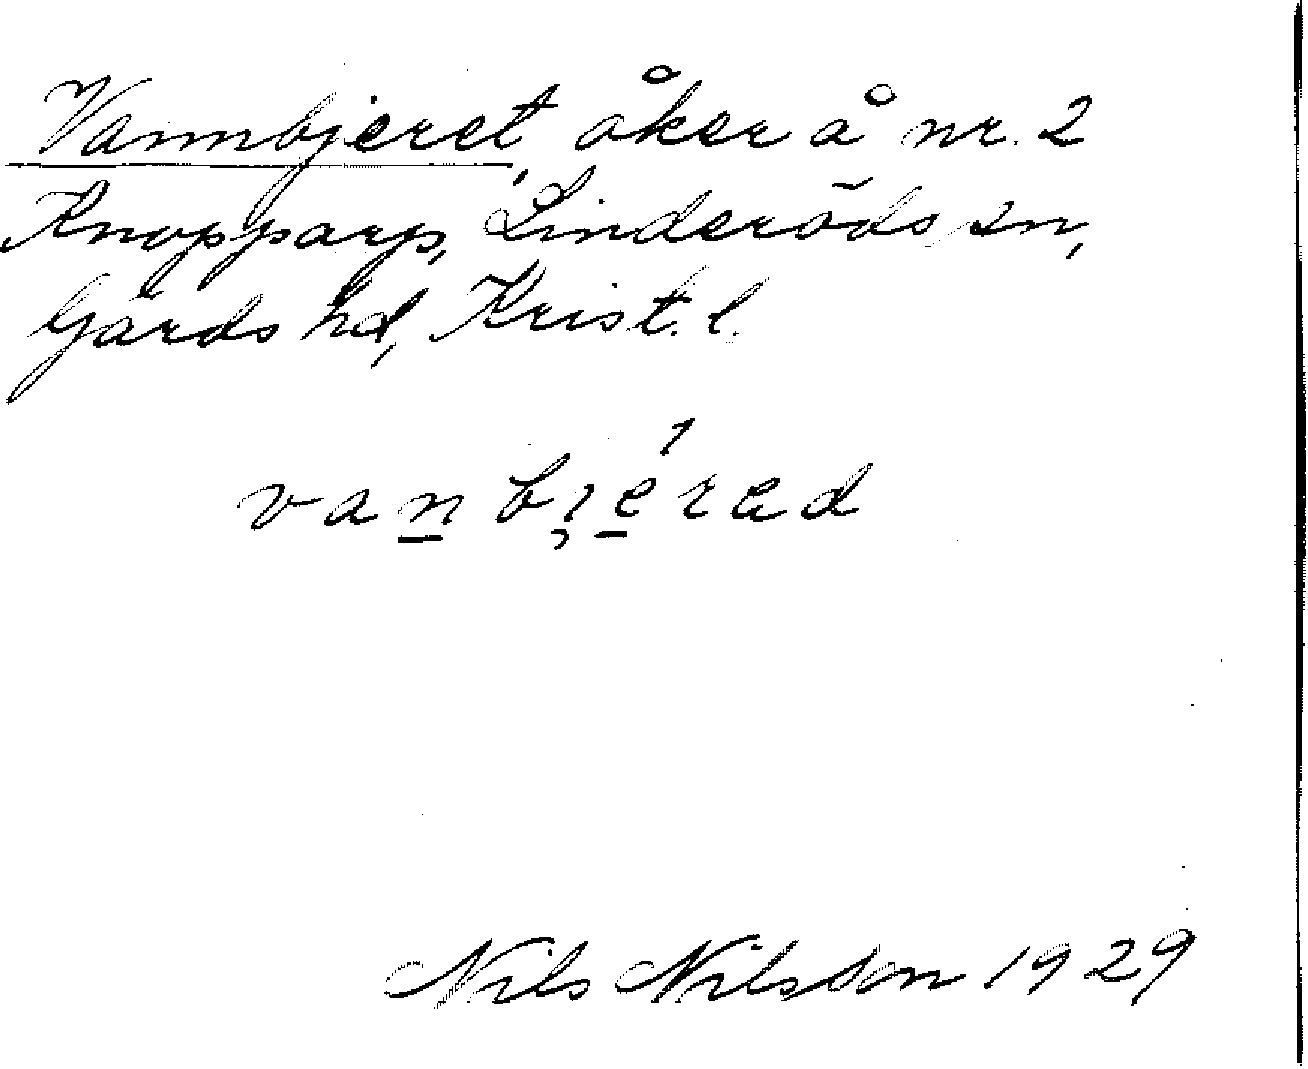 Vannbjeret, åker å nr. 2
Knopparp, Linderöds sn,
Gärds hd, Krist. l.
van bi̯érad
Nils Nilsson 1929